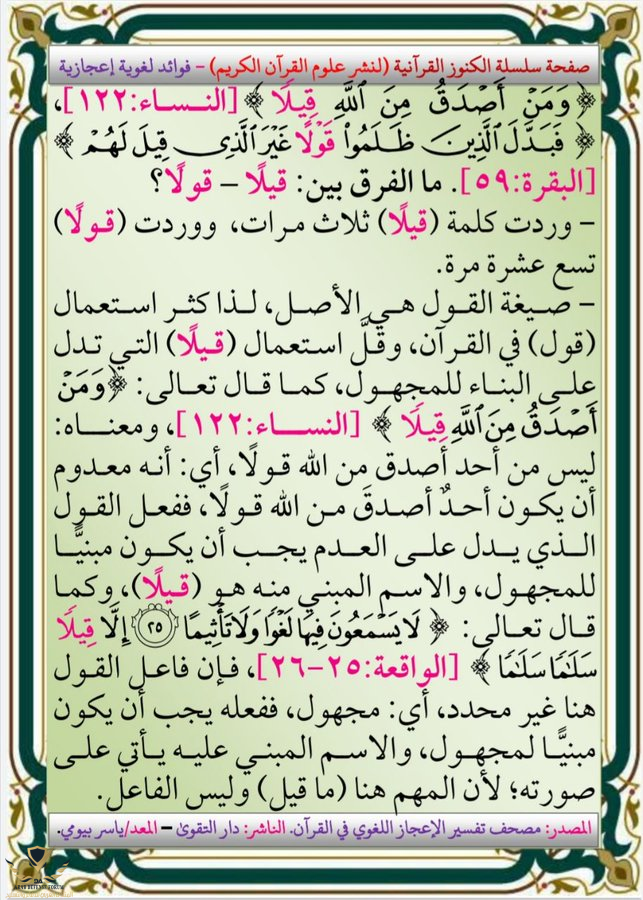 صفحة سلسلة الكنوز القرآنية (لنشر علوم القرآن الكريم) – فوائد لغوية إعجازية
﴿ وَمَنْ أَصْدَقُ مِنَ ٱللَّهِ قِيلًا ﴾ [النساء:١٢٢]،
﴿ فَبَدَّلَ ٱلَّذِينَ ظَلَمُوا۟ قَوْلًا غَيْرَ ٱلَّذِى قِيلَ لَهُمْ ﴾
[البقرة:٥٩]. ما الفرق بين: قيلًا – قولًا؟
– وردت كلمة (قيلًا) ثلاث مرات، ووردت (قولًا)
تسع عشرة مرة.
– صيغة القول هي الأصل، لذا كثر استعمال
(قول) في القرآن، وقلَّ استعمال (قيلًا) التي تدل
على البناء للمجهول، كما قال تعالى: ﴿وَمَنْ
أَصْدَقُ مِنَ ٱللَّهِ قِيلًا ﴾ [النساء:١٢٢]، ومعناه:
ليس من أحد أصدق من الله قولًا، أي: أنه معدوم
أن يكون أحدٌ أصدقَ من الله قولًا، ففعل القول
الذي يدل على العدم يجب أن يكون مبنيًّا
للمجهول، والاسم المبني منه هو (قيلًا)، وكما
قال تعالى: ﴿ لَا يَسْمَعُونَ فِيهَا لَغْوًا وَلَا تَأْثِيمًا ٢٥ إِلَّا قِيلًا
سَلَـٰمًا سَلَـٰمًا ﴾ [الواقعة:٢٥-٢٦]، فإن فاعل القول
هنا غير محدد، أي: مجهول، ففعله يجب أن يكون
مبنيًّا لمجهول، والاسم المبني عليه يأتي على
صورته؛ لأن المهم هنا (ما قيل) وليس الفاعل.
المصدر: مصحف تفسير الإعجاز اللغوي في القرآن. الناشر: دار التقوى – المعد/ياسر بيومي.